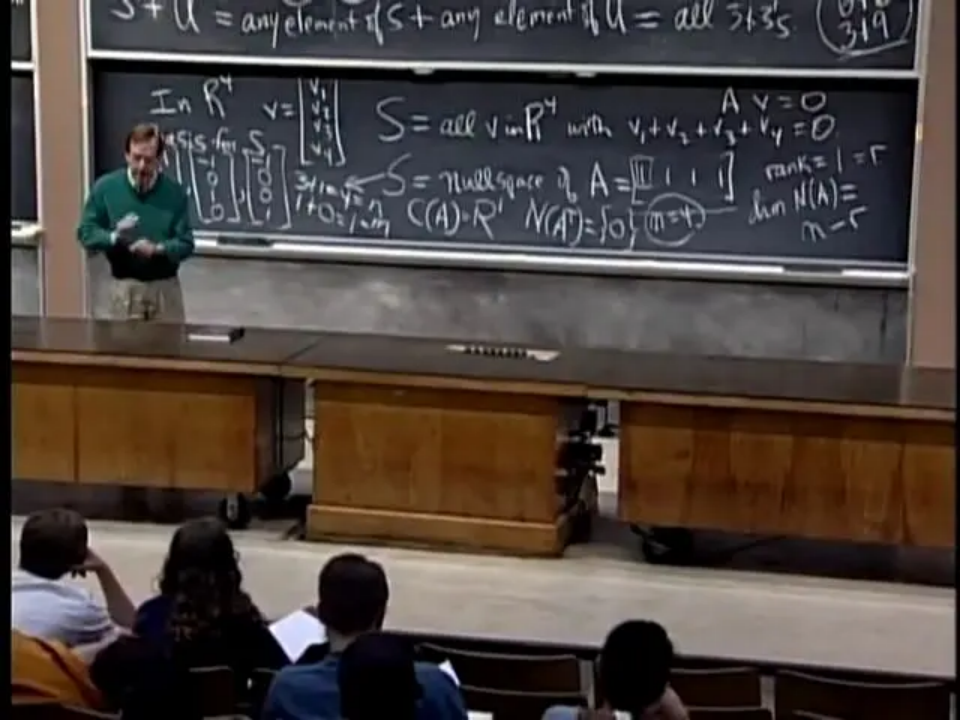 S + U = any element of S + any element of U = all 3x3's.
3+9
In R⁴ v = [v₁ v₂ v₃ v₄] S = all v in R⁴ with v₁+v₂+v₃+v₄=0
A v = 0
basis for S
[-1 0 0 1]
S = nullspace of A = [1 1 1 1] rank = 1 = r
3+1=4=n
1+0=1=m C(A)=R¹ N(Aᵀ)={0} n=4
dim N(A)=
n-r